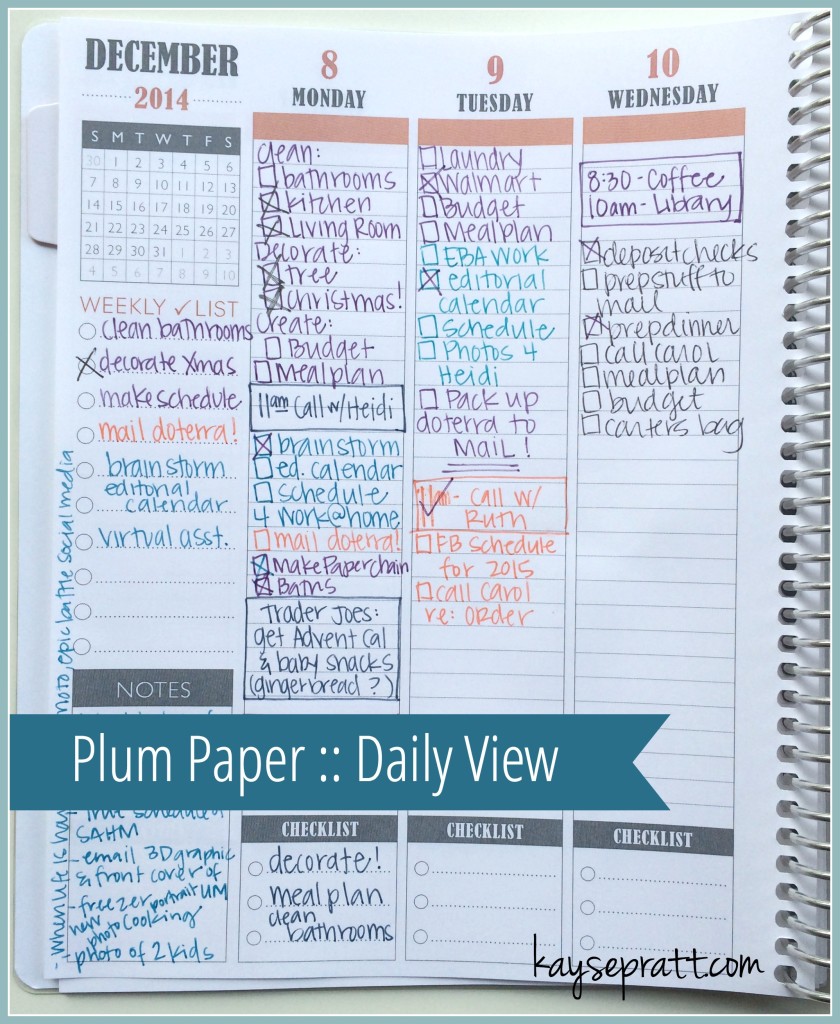 DECEMBER
2014
S M T W T F S
30 1 2 3 4 5 6
7 8 9 10 11 12 13
14 15 16 17 18 19 20
21 22 23 24 25 26 27
28 29 30 31 1 2 3
4 5 6 7 8 9 10
WEEKLY ✓ LIST
clean bathrooms
decorate Xmas
make schedule
mail doterra!
brainstorm
editorial
calendar
virtual asst.
NOTES
SAHM
- email 3D graphic
& front cover of
- freezer portrait UM
new
photo cooking
photo of 2 kids
epic battle social media
- when life is
8
MONDAY
clean:
bathrooms
kitchen
Living Room
Decorate:
tree
Christmas!
Create:
Budget
Meal plan
11am Call w/Heidi
brainstorm
ed. calendar
schedule
4 work@home
mail doterra!
Make Paperchain
Baths
Trader Joes:
get Advent Cal
& baby snacks
(gingerbread?)
CHECKLIST
decorate!
meal plan
clean
bathrooms
9
TUESDAY
Laundry
Walmart
Budget
Meal plan
EBA work
editorial
calendar
Schedule
Photos 4
Heidi
Pack up
doterra to
MAIL!
11am - Call w/
Ruth
FB Schedule
for 2015
call Carol
re: Order
CHECKLIST
10
WEDNESDAY
8:30 - Coffee
10am - Library
deposit checks
prep stuff to
mail
prep dinner
call carol
meal plan
budget
carters bag
CHECKLIST
Plum Paper :: Daily View
kaysepratt.com